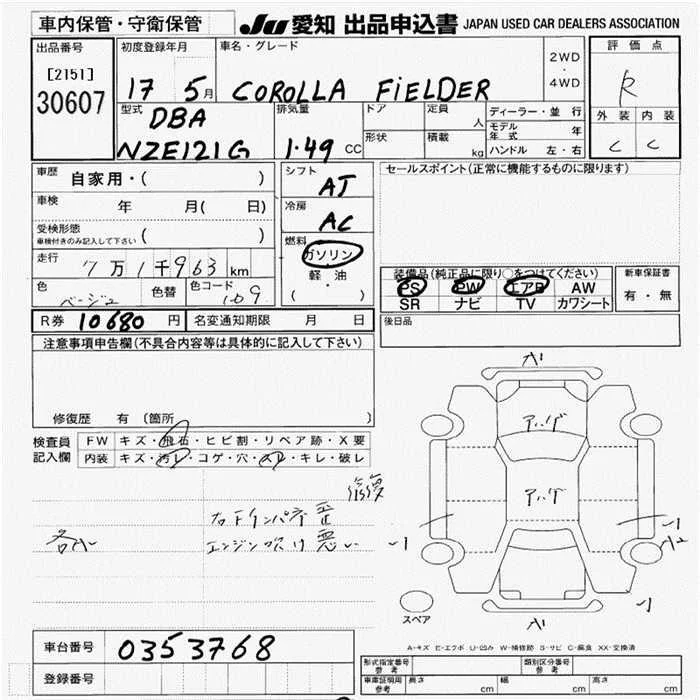 車内保管・守衛保管
JU 愛知 出品申込書 JAPAN USED CAR DEALERS ASSOCIATION
出品番号
[2151]
30607
初度登録年月
17 5月
車名・グレード
COROLLA FiELDER
2WD
・
4WD
評価点
R
外装 内装
C C
型式
DBA
NZE121G
排気量
1.49 CC
ドア
形状
定員 人
積載 kg
ディーラー・並行
モデル年式 年
ハンドル 左・右
車歴 自家用・( )
車検 年 月( 日)
受検形態
車検付きのみ記入して下さい ( )
走行 7万1千963 km
色 ベージュ 色替 色コード 109
シフト
AT
冷房
AC
燃料
ガソリン
軽・油
( )
セールスポイント(正常に機能するものに限ります)
装備品(純正品に限り○をつけてください)
PS PW エアB AW
SR ナビ TV カワシート
新車保証書
有・無
R券 10680 円 名変通知期限 月 日
後日品
注意事項申告欄(不具合内容等は具体的に記入して下さい)
修復歴 有 (箇所 )
検査員
記入欄
FW キズ・飛石・ヒビ割・リペア跡・X要
内装 キズ・汚レ・コゲ・穴・スレ・キレ・破レ
修復
右下インパネ歪
各小
エンジン吹け悪い
スペア
A-キズ E-エクボ U-凹み W-補修跡 S-サビ C-腐食 XX-交換済
車台番号 0353768
登録番号
形式指定番号
参考
類別区分番号
参考
車庫証明用
参考
長さ cm 幅 cm 高さ cm